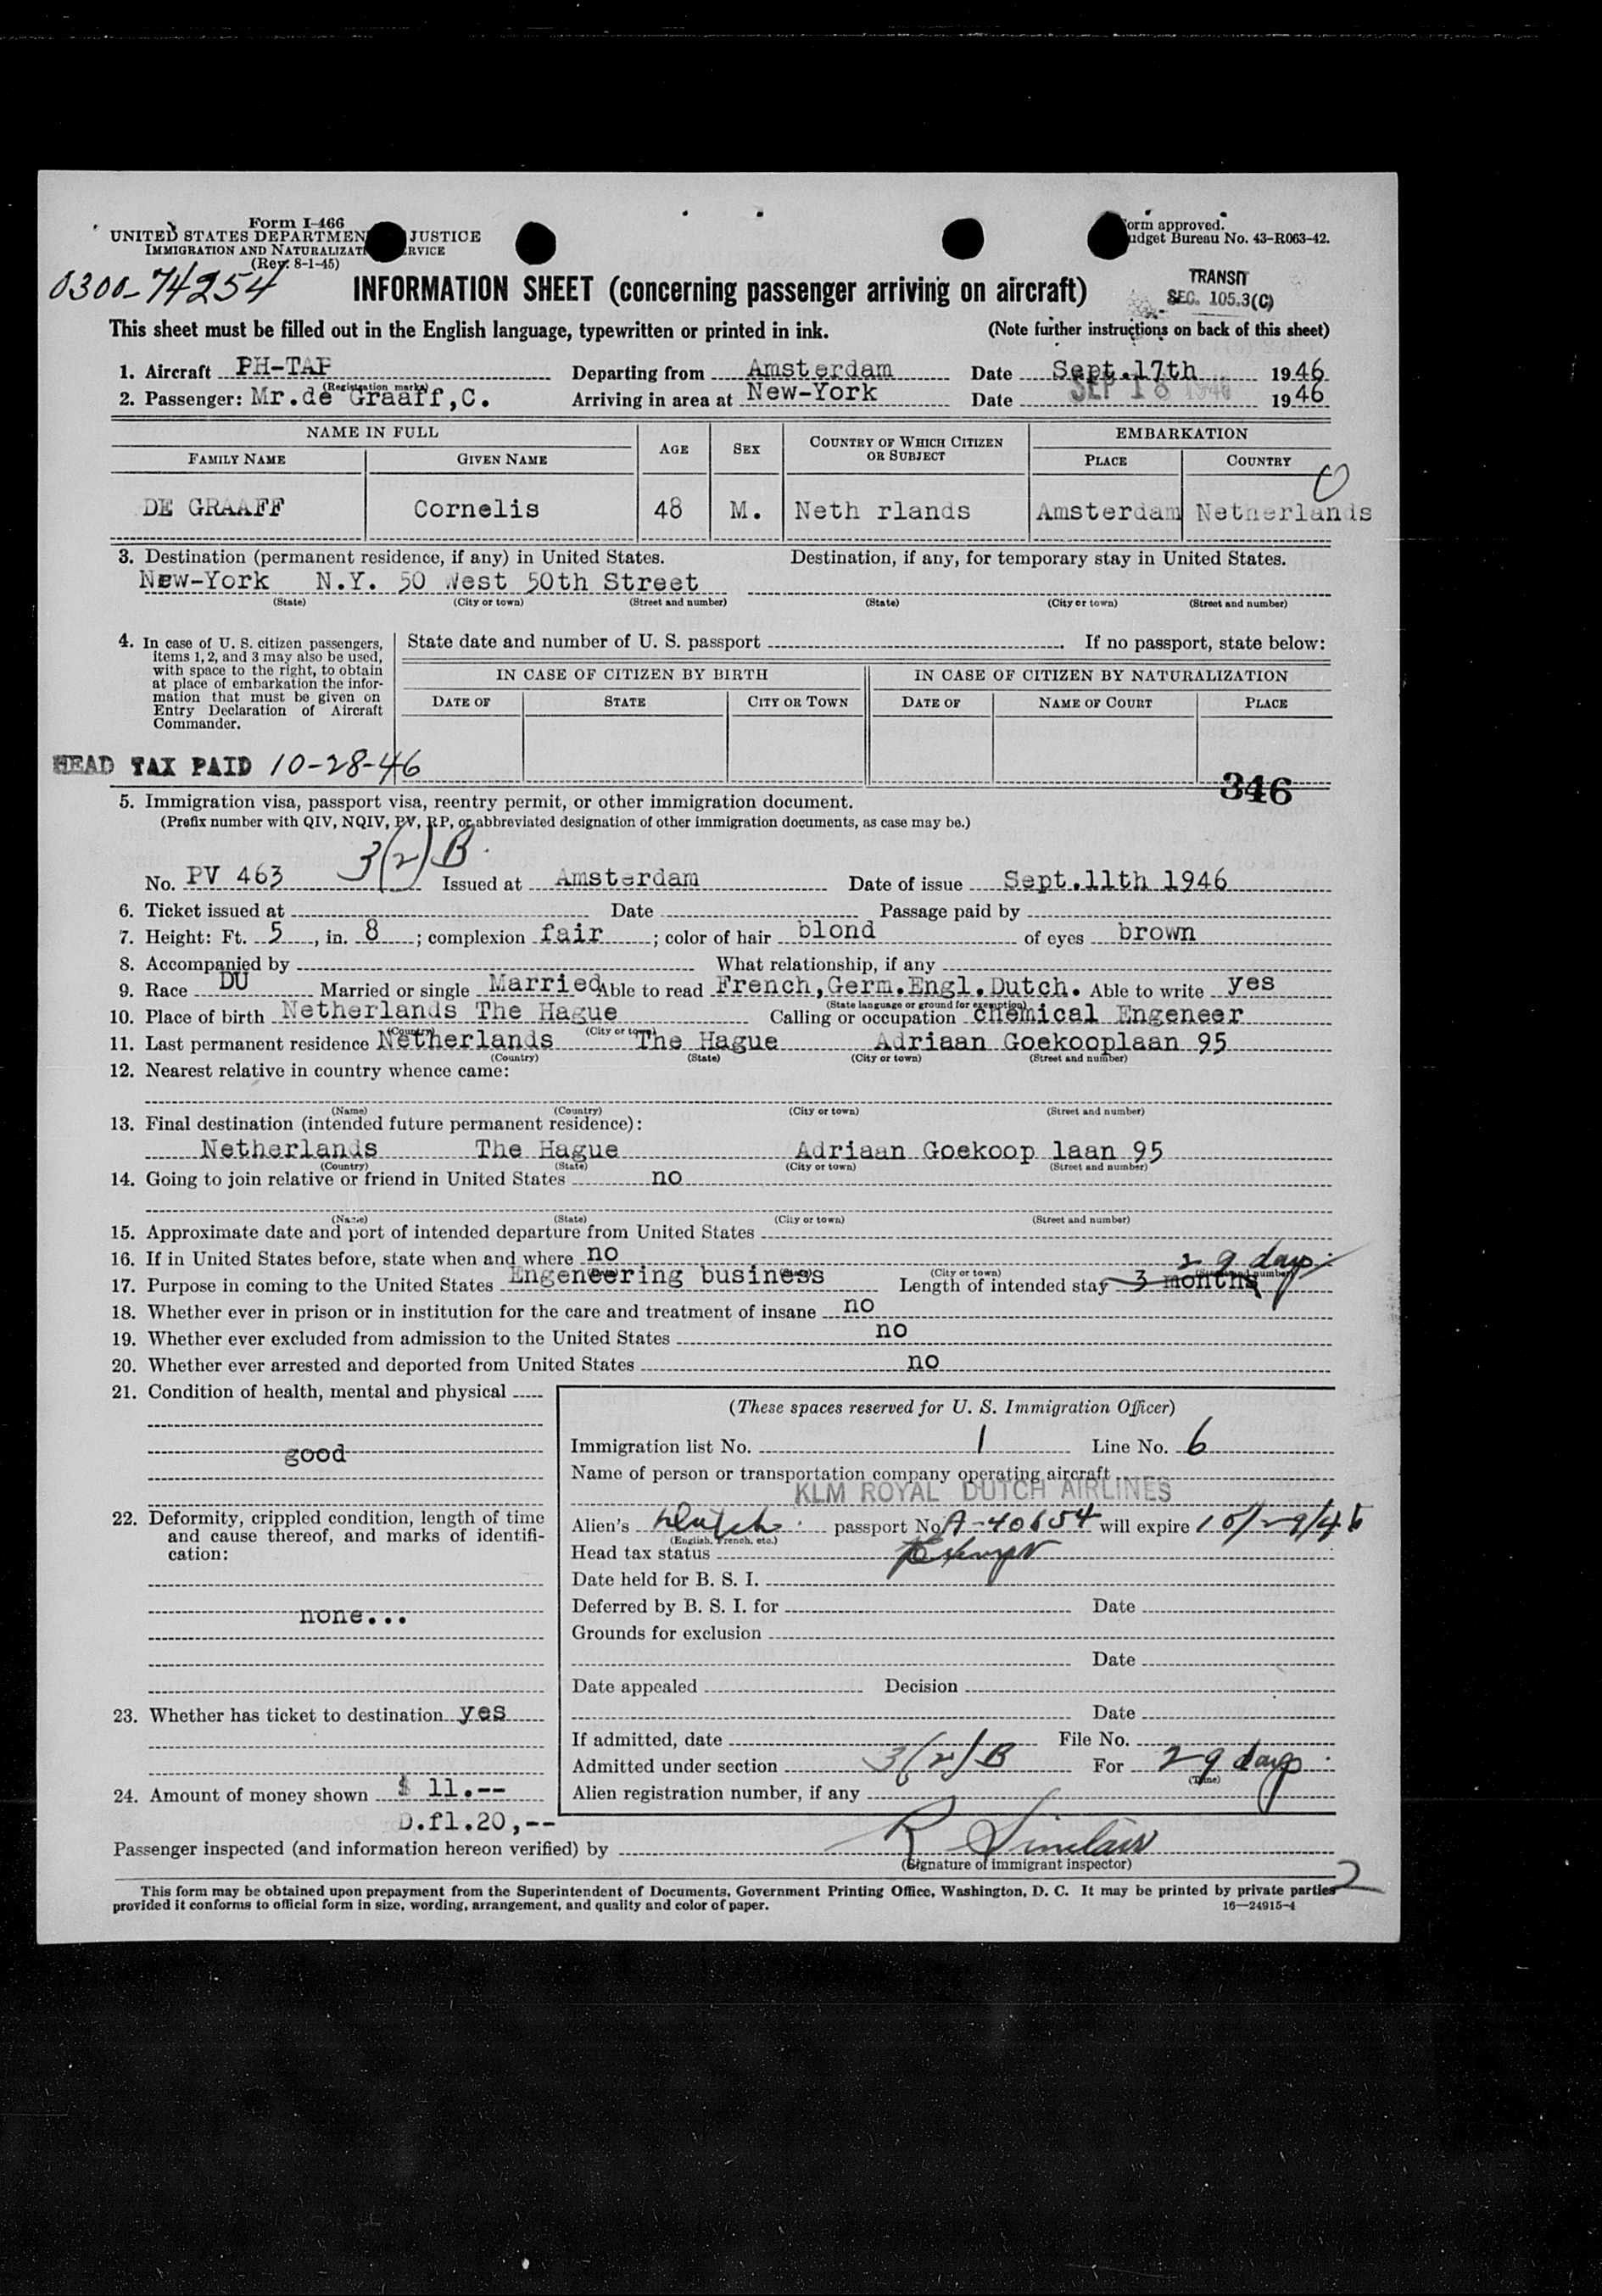 Form I-466
UNITED STATES DEPARTMEN JUSTICE
IMMIGRATION AND NATURALIZATI RVICE
(Rev. 8-1-45)
orm approved.
udget Bureau No. 43-R063-42.
0300-74254
INFORMATION SHEET (concerning passenger arriving on aircraft)
TRANSIT
SEC. 105.3(C)
This sheet must be filled out in the English language, typewritten or printed in ink. (Note further instructions on back of this sheet)
1. Aircraft PH-TAP Departing from Amsterdam Date Sept.17th 1946
(Registration marks)
2. Passenger: Mr.de Graaff,C. Arriving in area at New-York Date SEP 18 1946 1946
NAME IN FULL AGE SEX COUNTRY OF WHICH CITIZEN OR SUBJECT EMBARKATION
FAMILY NAME GIVEN NAME PLACE COUNTRY
DE GRAAFF Cornelis 48 M. Neth rlands Amsterdam Netherlands
3. Destination (permanent residence, if any) in United States. Destination, if any, for temporary stay in United States.
New-York N.Y. 50 West 50th Street
(State) (City or town) (Street and number) (State) (City or town) (Street and number)
4. In case of U. S. citizen passengers,
items 1, 2, and 3 may also be used,
with space to the right, to obtain
at place of embarkation the infor-
mation that must be given on
Entry Declaration of Aircraft
Commander.
State date and number of U. S. passport . If no passport, state below:
IN CASE OF CITIZEN BY BIRTH IN CASE OF CITIZEN BY NATURALIZATION
DATE OF STATE CITY OR TOWN DATE OF NAME OF COURT PLACE
HEAD TAX PAID 10-28-46
346
5. Immigration visa, passport visa, reentry permit, or other immigration document.
(Prefix number with QIV, NQIV, PV, RP, or abbreviated designation of other immigration documents, as case may be.)
3(2)B
No. PV 463 Issued at Amsterdam Date of issue Sept.11th 1946
6. Ticket issued at Date Passage paid by
7. Height: Ft. 5, in. 8; complexion fair; color of hair blond of eyes brown
8. Accompanied by What relationship, if any
9. Race DU Married or single Married Able to read French,Germ.Engl.Dutch. Able to write yes
(State language or ground for exemption)
10. Place of birth Netherlands The Hague Calling or occupation chemical Engeneer
(Country) (City or town)
11. Last permanent residence Netherlands The Hague Adriaan Goekooplaan 95
(Country) (State) (City or town) (Street and number)
12. Nearest relative in country whence came:
(Name) (Country) (City or town) (Street and number)
13. Final destination (intended future permanent residence):
Netherlands The Hague Adriaan Goekoop laan 95
(Country) (State) (City or town) (Street and number)
14. Going to join relative or friend in United States no
(Name) (State) (City or town) (Street and number)
15. Approximate date and port of intended departure from United States
16. If in United States before, state when and where no
29 days
(City or town) (Street and number)
17. Purpose in coming to the United States Engeneering business Length of intended stay 3 months
18. Whether ever in prison or in institution for the care and treatment of insane no
19. Whether ever excluded from admission to the United States no
20. Whether ever arrested and deported from United States no
21. Condition of health, mental and physical
good
22. Deformity, crippled condition, length of time
and cause thereof, and marks of identifi-
cation:
none...
23. Whether has ticket to destination yes
24. Amount of money shown $ 11.--
D.fl.20,--
(These spaces reserved for U. S. Immigration Officer)
Immigration list No. 1 Line No. 6
Name of person or transportation company operating aircraft
KLM ROYAL DUTCH AIRLINES
Alien's Dutch passport No. A-40654 will expire 10/29/46
(English, French, etc.)
Head tax status Exempt
Date held for B. S. I.
Deferred by B. S. I. for Date
Grounds for exclusion
Date
Date appealed Decision
Date
If admitted, date File No.
Admitted under section 3(2)B For 29 days
(Time)
Alien registration number, if any
Passenger inspected (and information hereon verified) by R Sinclair
(Signature of immigrant inspector)
2
This form may be obtained upon prepayment from the Superintendent of Documents, Government Printing Office, Washington, D. C. It may be printed by private parties
provided it conforms to official form in size, wording, arrangement, and quality and color of paper. 16—24915-4